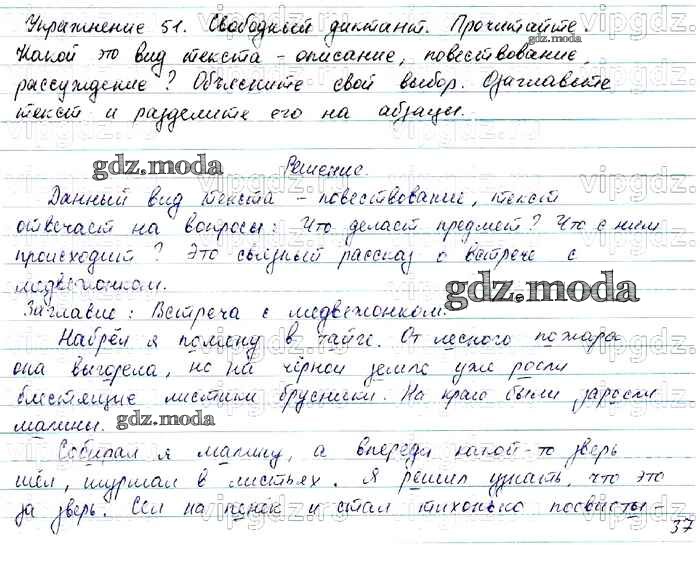 Упражнение 51. Свободный диктант. Прочитайте.
Какой это вид текста - описание, повествование,
рассуждение? Объясните свой выбор. Озаглавьте
текст и разделите его на абзацы.
Решение.
Данный вид текста - повествование, текст
отвечает на вопросы: Что делает предмет? Что с ним
происходит? Это связный рассказ о встрече с
медвежонком.
Заглавие: Встреча с медвежонком.
Набрёл я поляну в тайге. От лесного пожара
она выгорела, но на чёрной земле уже росли
блестящие листики брусники. На краю были заросли
малины.
Собирал я малину, а впереди какой-то зверь
шёл, шуршал в листьях. Я решил узнать, что это
за зверь. Сел на пенёк и стал тихонько посвисты-
37
gdz.moda
gdz.moda
gdz.moda
gdz.moda
vipgdz.ru